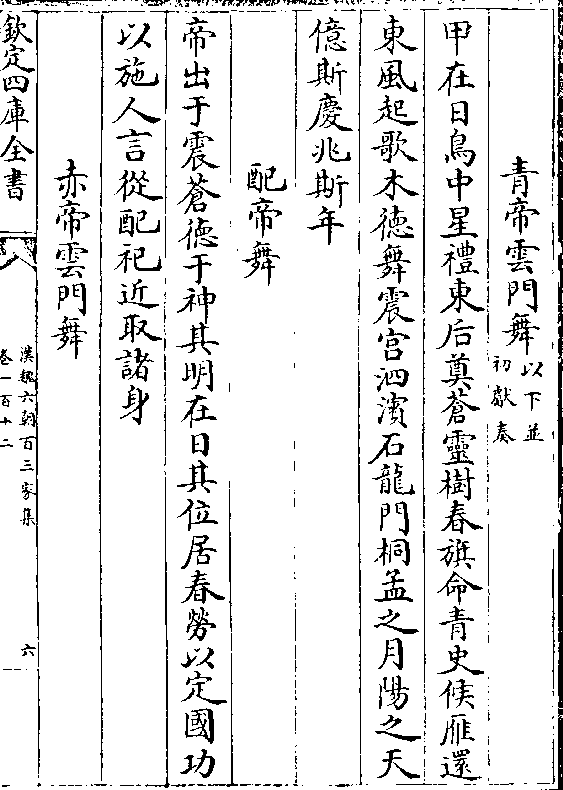 青帝雲門舞以下並初獻奏
甲在日鳥中星禮東后奠蒼靈樹春旗命青史候雁還
東風起歌木德舞震宮泗濱石龍門桐孟之月陽之天
億斯慶兆斯年
配帝舞
帝出于震蒼德于神其明在日其位居春勞以定國功
以施人言從配祀近取諸身
赤帝雲門舞
欽定四庫全書
漢魏六朝百三家集
卷一百十二
六